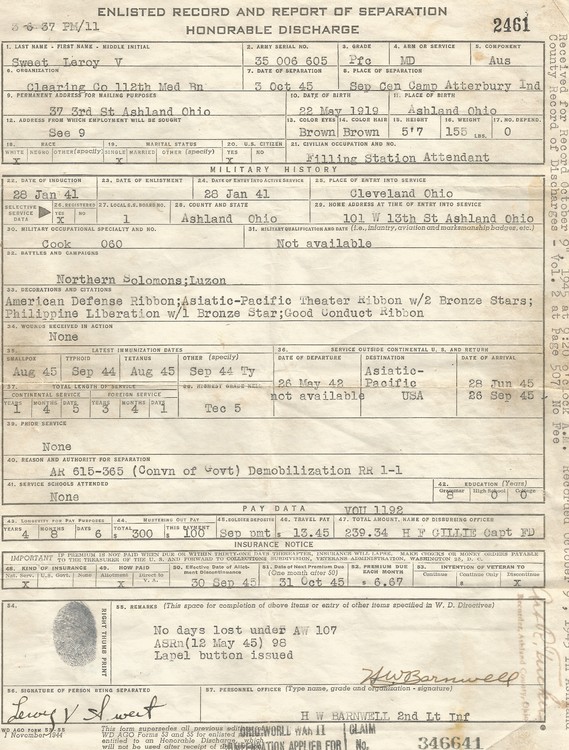 ENLISTED RECORD AND REPORT OF SEPARATION
3 6 37 PM/11
HONORABLE DISCHARGE
2461
1. LAST NAME - FIRST NAME - MIDDLE INITIAL 2. ARMY SERIAL NO. 3. GRADE 4. ARM OR SERVICE 5. COMPONENT
Sweat Leroy V 35 006 605 Pfc MD Aus
6. ORGANIZATION 7. DATE OF SEPARATION 8. PLACE OF SEPARATION
Clearing Co 112th Med Bn 3 Oct 45 Sep Cen Camp Atterbury Ind
9. PERMANENT ADDRESS FOR MAILING PURPOSES 10. DATE OF BIRTH 11. PLACE OF BIRTH
37 3rd St Ashland Ohio 22 May 1919 Ashland Ohio
12. ADDRESS FROM WHICH EMPLOYMENT WILL BE SOUGHT 13. COLOR EYES 14. COLOR HAIR 15. HEIGHT 16. WEIGHT 17. NO. DEPEND.
See 9 Brown Brown 5'7 155 LBS. 0
18. RACE 19. MARITAL STATUS 20. U.S. CITIZEN 21. CIVILIAN OCCUPATION AND NO.
WHITE NEGRO OTHER (specify) SINGLE MARRIED OTHER (specify) YES NO
X X X Filling Station Attendant
MILITARY HISTORY
22. DATE OF INDUCTION 23. DATE OF ENLISTMENT 24. DATE OF ENTRY INTO ACTIVE SERVICE 25. PLACE OF ENTRY INTO SERVICE
28 Jan 41 28 Jan 41 Cleveland Ohio
SELECTIVE SERVICE DATA 26. REGISTERED YES NO 27. LOCAL S.S. BOARD NO. 28. COUNTY AND STATE 29. HOME ADDRESS AT TIME OF ENTRY INTO SERVICE
X 1 Ashland Ohio 101 W 13th St Ashland Ohio
30. MILITARY OCCUPATIONAL SPECIALTY AND NO. 31. MILITARY QUALIFICATION AND DATE (i.e., infantry, aviation and marksmanship badges, etc.)
Cook 060 Not available
32. BATTLES AND CAMPAIGNS
Northern Solomons;Luzon
33. DECORATIONS AND CITATIONS
American Defense Ribbon;Asiatic-Pacific Theater Ribbon w/2 Bronze Stars;
Philippine Liberation w/1 Bronze Star;Good Conduct Ribbon
34. WOUNDS RECEIVED IN ACTION
None
35. LATEST IMMUNIZATION DATES 36. SERVICE OUTSIDE CONTINENTAL U.S. AND RETURN
SMALLPOX TYPHOID TETANUS OTHER (specify) DATE OF DEPARTURE DESTINATION DATE OF ARRIVAL
Aug 45 Sep 44 Aug 45 Sep 44 Ty 26 May 42 Asiatic-Pacific 28 Jun 45
not available USA 26 Sep 45
37. TOTAL LENGTH OF SERVICE 38. HIGHEST GRADE HELD
CONTINENTAL SERVICE FOREIGN SERVICE
YEARS MONTHS DAYS YEARS MONTHS DAYS
1 4 5 3 4 1 Tec 5
39. PRIOR SERVICE
None
40. REASON AND AUTHORITY FOR SEPARATION
AR 615-365 (Convn of Govt) Demobilization RR 1-1
41. SERVICE SCHOOLS ATTENDED 42. EDUCATION (Years)
None Grammar High School College
8 0 0
PAY DATA VOU 1192
43. LONGEVITY FOR PAY PURPOSES 44. MUSTERING OUT PAY 45. SOLDIER DEPOSITS 46. TRAVEL PAY 47. TOTAL AMOUNT, NAME OF DISBURSING OFFICER
YEARS MONTHS DAYS TOTAL THIS PAYMENT
4 8 6 $ 300 $ 100 Sep pmt $ 13.45 239.34 H F GILLIE Capt FD
INSURANCE NOTICE
IMPORTANT IF PREMIUM IS NOT PAID WHEN DUE OR WITHIN THIRTY-ONE DAYS THEREAFTER, INSURANCE WILL LAPSE. MAKE CHECKS OR MONEY ORDERS PAYABLE
TO THE TREASURER OF THE U. S. AND FORWARD TO COLLECTIONS SUBDIVISION, VETERANS ADMINISTRATION, WASHINGTON 25, D. C.
48. KIND OF INSURANCE 49. HOW PAID 50. Effective Date of Allotment Discontinuance 51. Date of Next Premium Due (One month after 50) 52. PREMIUM DUE EACH MONTH 53. INTENTION OF VETERAN TO
Nat. Serv. U.S. Govt. None Allotment Direct to V. A. Continue Continue Only Discontinue
X X 30 Sep 45 31 Oct 45 $ 6.67 X
54. 55. REMARKS (This space for completion of above items or entry of other items specified in W. D. Directives)
RIGHT THUMB PRINT
No days lost under AW 107
ASRn(12 May 45) 98
Lapel button issued
HW Barnwell
56. SIGNATURE OF PERSON BEING SEPARATED 57. PERSONNEL OFFICER (Type name, grade and organization - signature)
Leroy V Sweat H W BARNWELL 2nd Lt Inf
WD AGO FORM 53-55
1 November 1944
This form supersedes all previous editions of
WD AGO Forms 53 and 55 for enlisted
entitled to an Honorable Discharge, which
will not be used after receipt of
CLAIM No. 346641